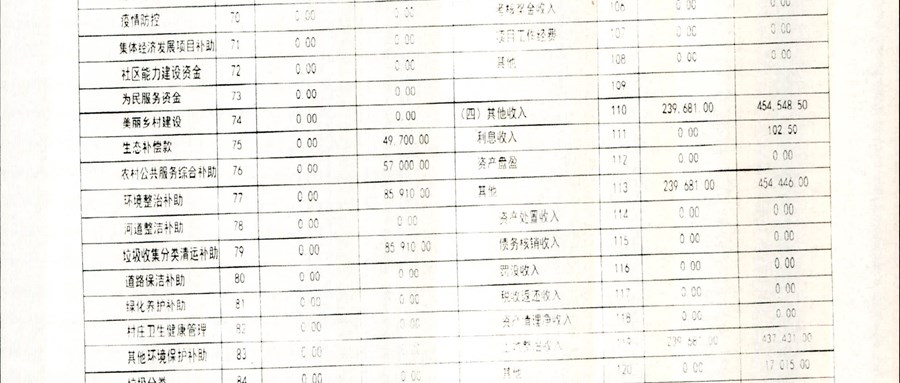 疫情防控 70 0.00 0.00 106 0.00 0.00
集体经济发展项目补助 71 0.00 0.00 项目工作经费 107 0.00 0.00
社区能力建设资金 72 0.00 0.00 其他 108 0.00 0.00
为民服务资金 73 0.00 0.00 109
美丽乡村建设 74 0.00 0.00 (四)其他收入 110 239,681.00 454,548.50
生态补偿款 75 0.00 49,700.00 利息收入 111 0.00 102.50
农村公共服务综合补助 76 0.00 57,000.00 资产盘盈 112 0.00 0.00
环境整治补助 77 0.00 85,910.00 其他 113 239,681.00 454,446.00
河道整洁补助 78 0.00 0.00 资产处置收入 114 0.00 0.00
垃圾收集分类清运补助 79 0.00 85,910.00 债务核销收入 115 0.00 0.00
道路保洁补助 80 0.00 0.00 罚没收入 116 0.00 0.00
绿化养护补助 81 0.00 0.00 税收返还收入 117 0.00 0.00
村庄卫生健康管理 82 0.00 0.00 资产清理净收入 118 0.00 0.00
其他环境保护补助 83 0.00 119 239,681.00 437,431.00
垃圾分类 84 0.00 0.00 其他 120 0.00 17,015.00